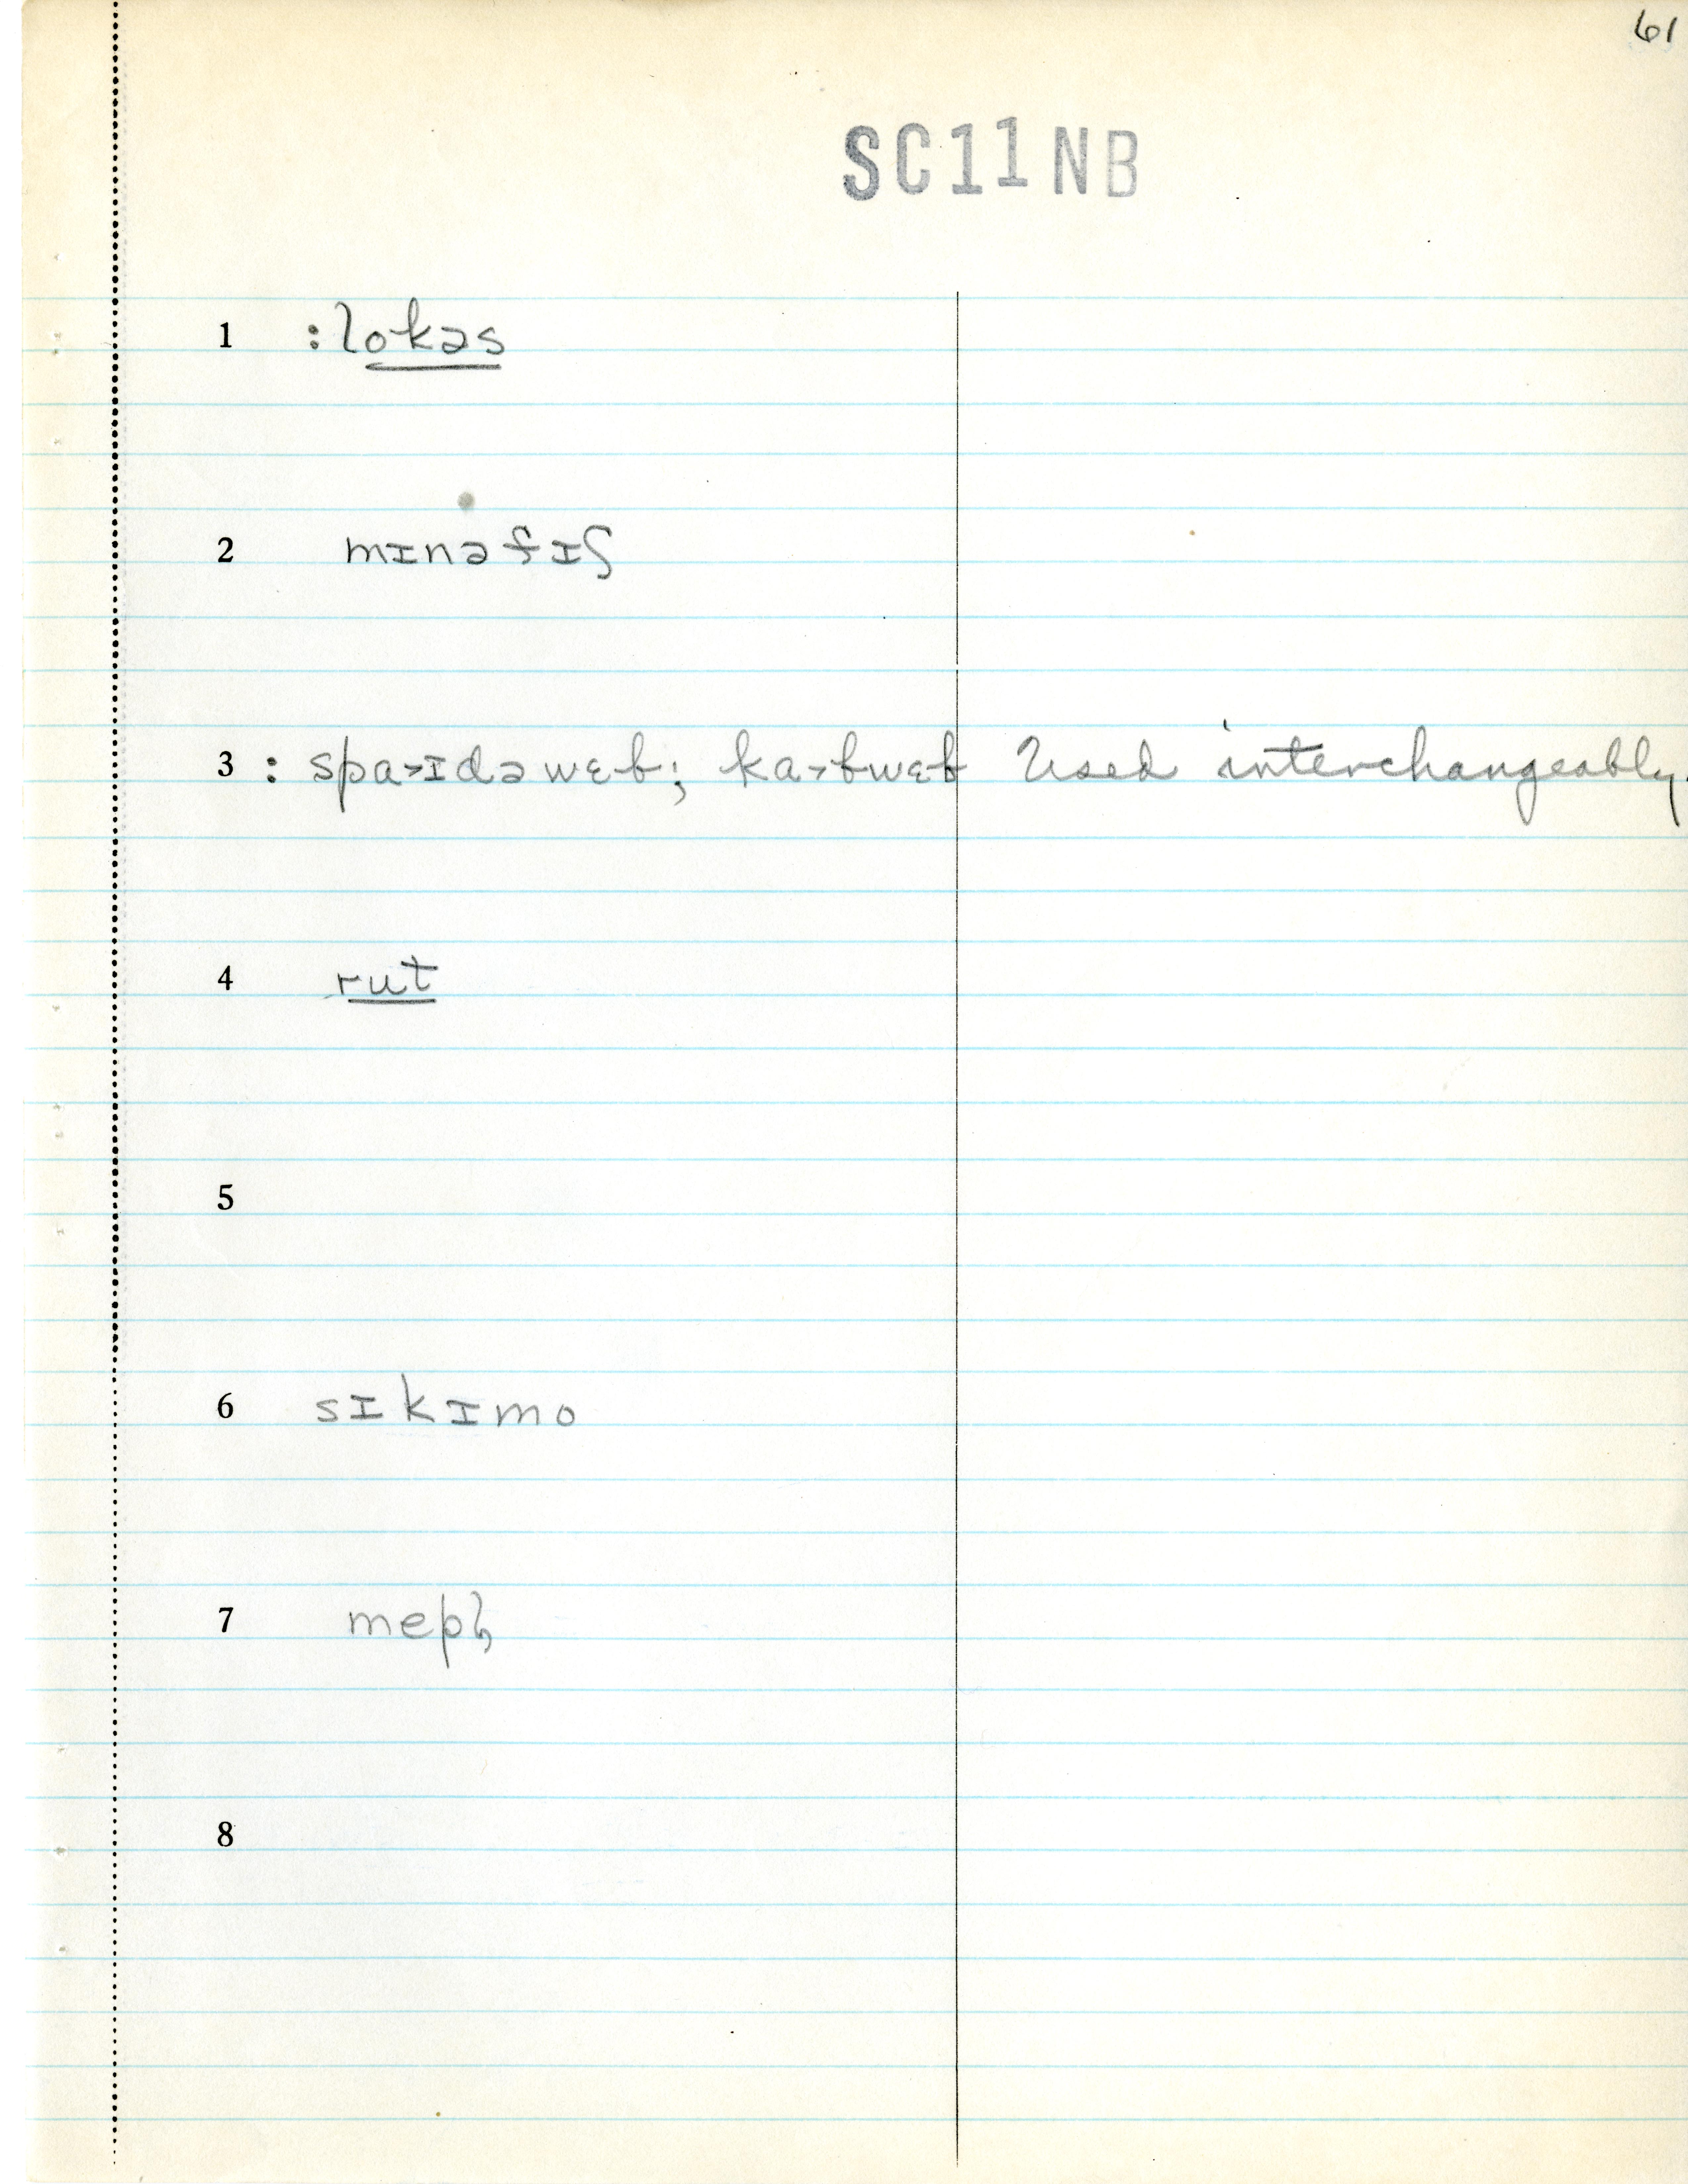 61
SC11NB
1 :lokəs
2 mɪnəfɪʃ
3 : spa>ɪdəwɛb; ka>bwɛb Used interchangeably.
4 rut
5
6 sɪkɪmo
7 mepl̩
8